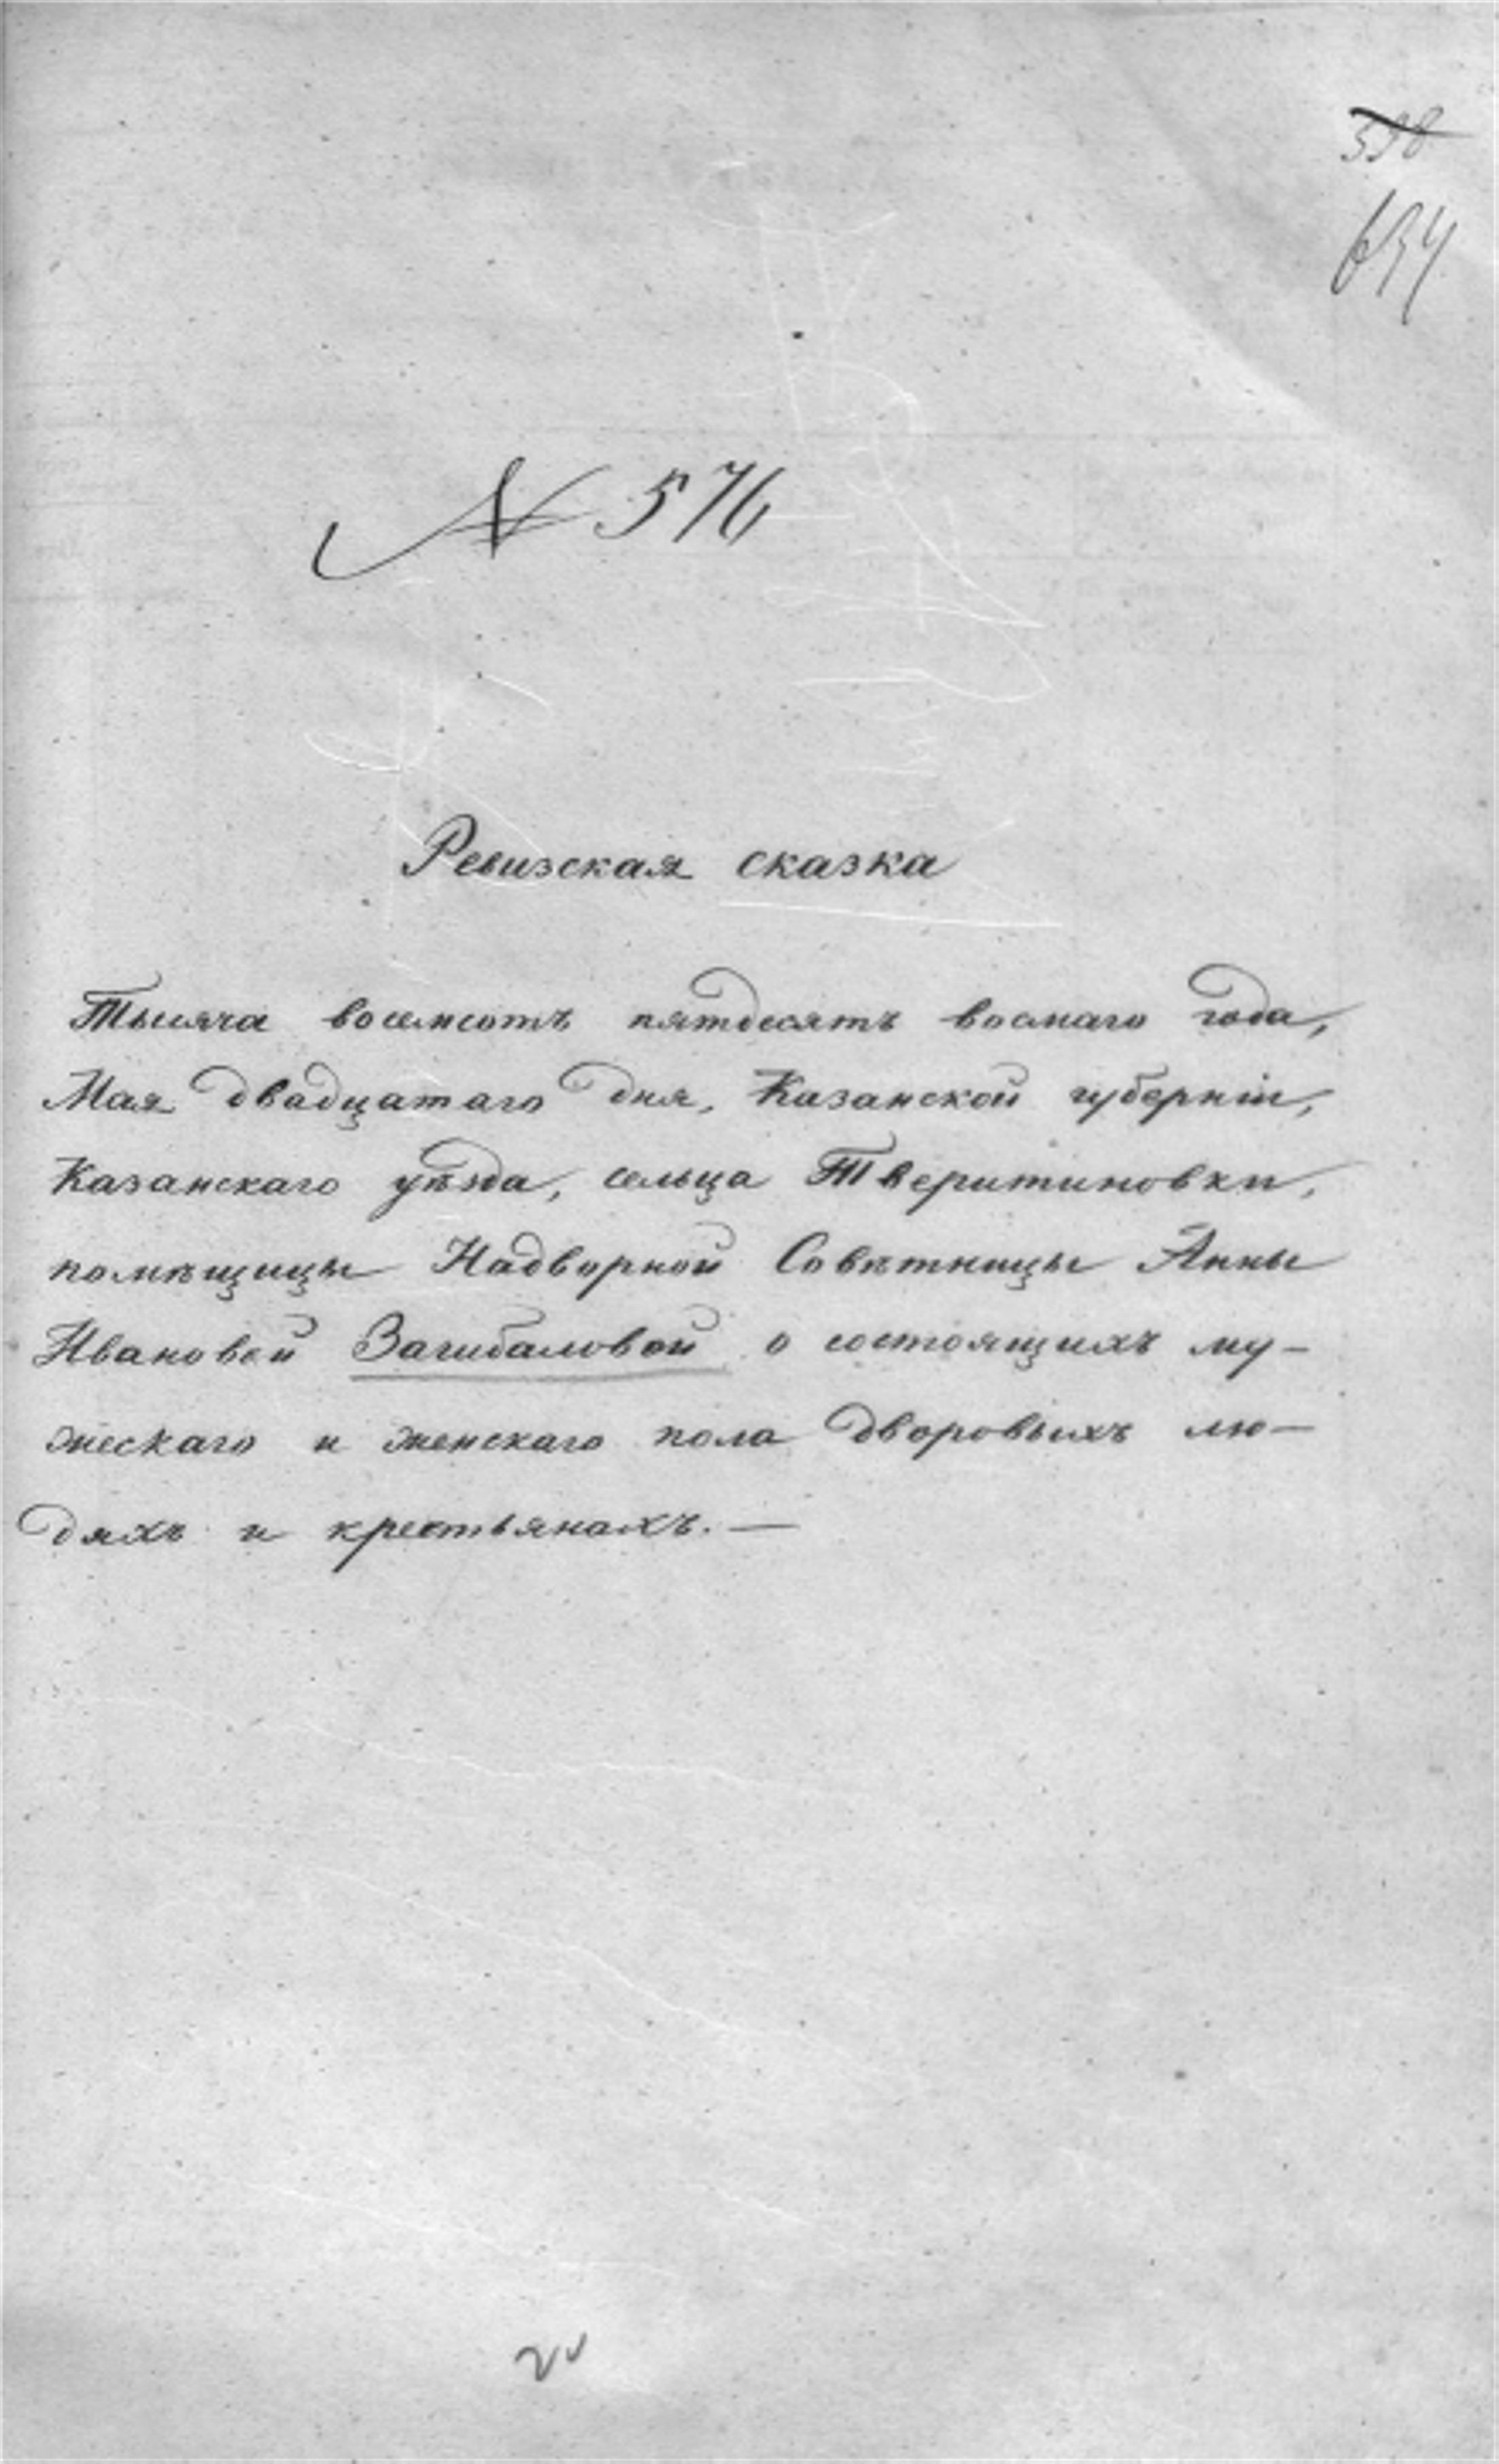 598
634
№ 576
Ревизская сказка
Тысяча восемсотъ пятдесятъ восмаго года,
Мая двадцатаго дня, Казанской губерніи,
Казанскаго уѣзда, сельца Тверитиновки,
помѣщицы Надворной Совѣтницы Анны
Ивановой Загибаловой о состоящихъ му-
жескаго и женскаго пола дворовыхъ лю-
дяхъ и крестьянахъ. —